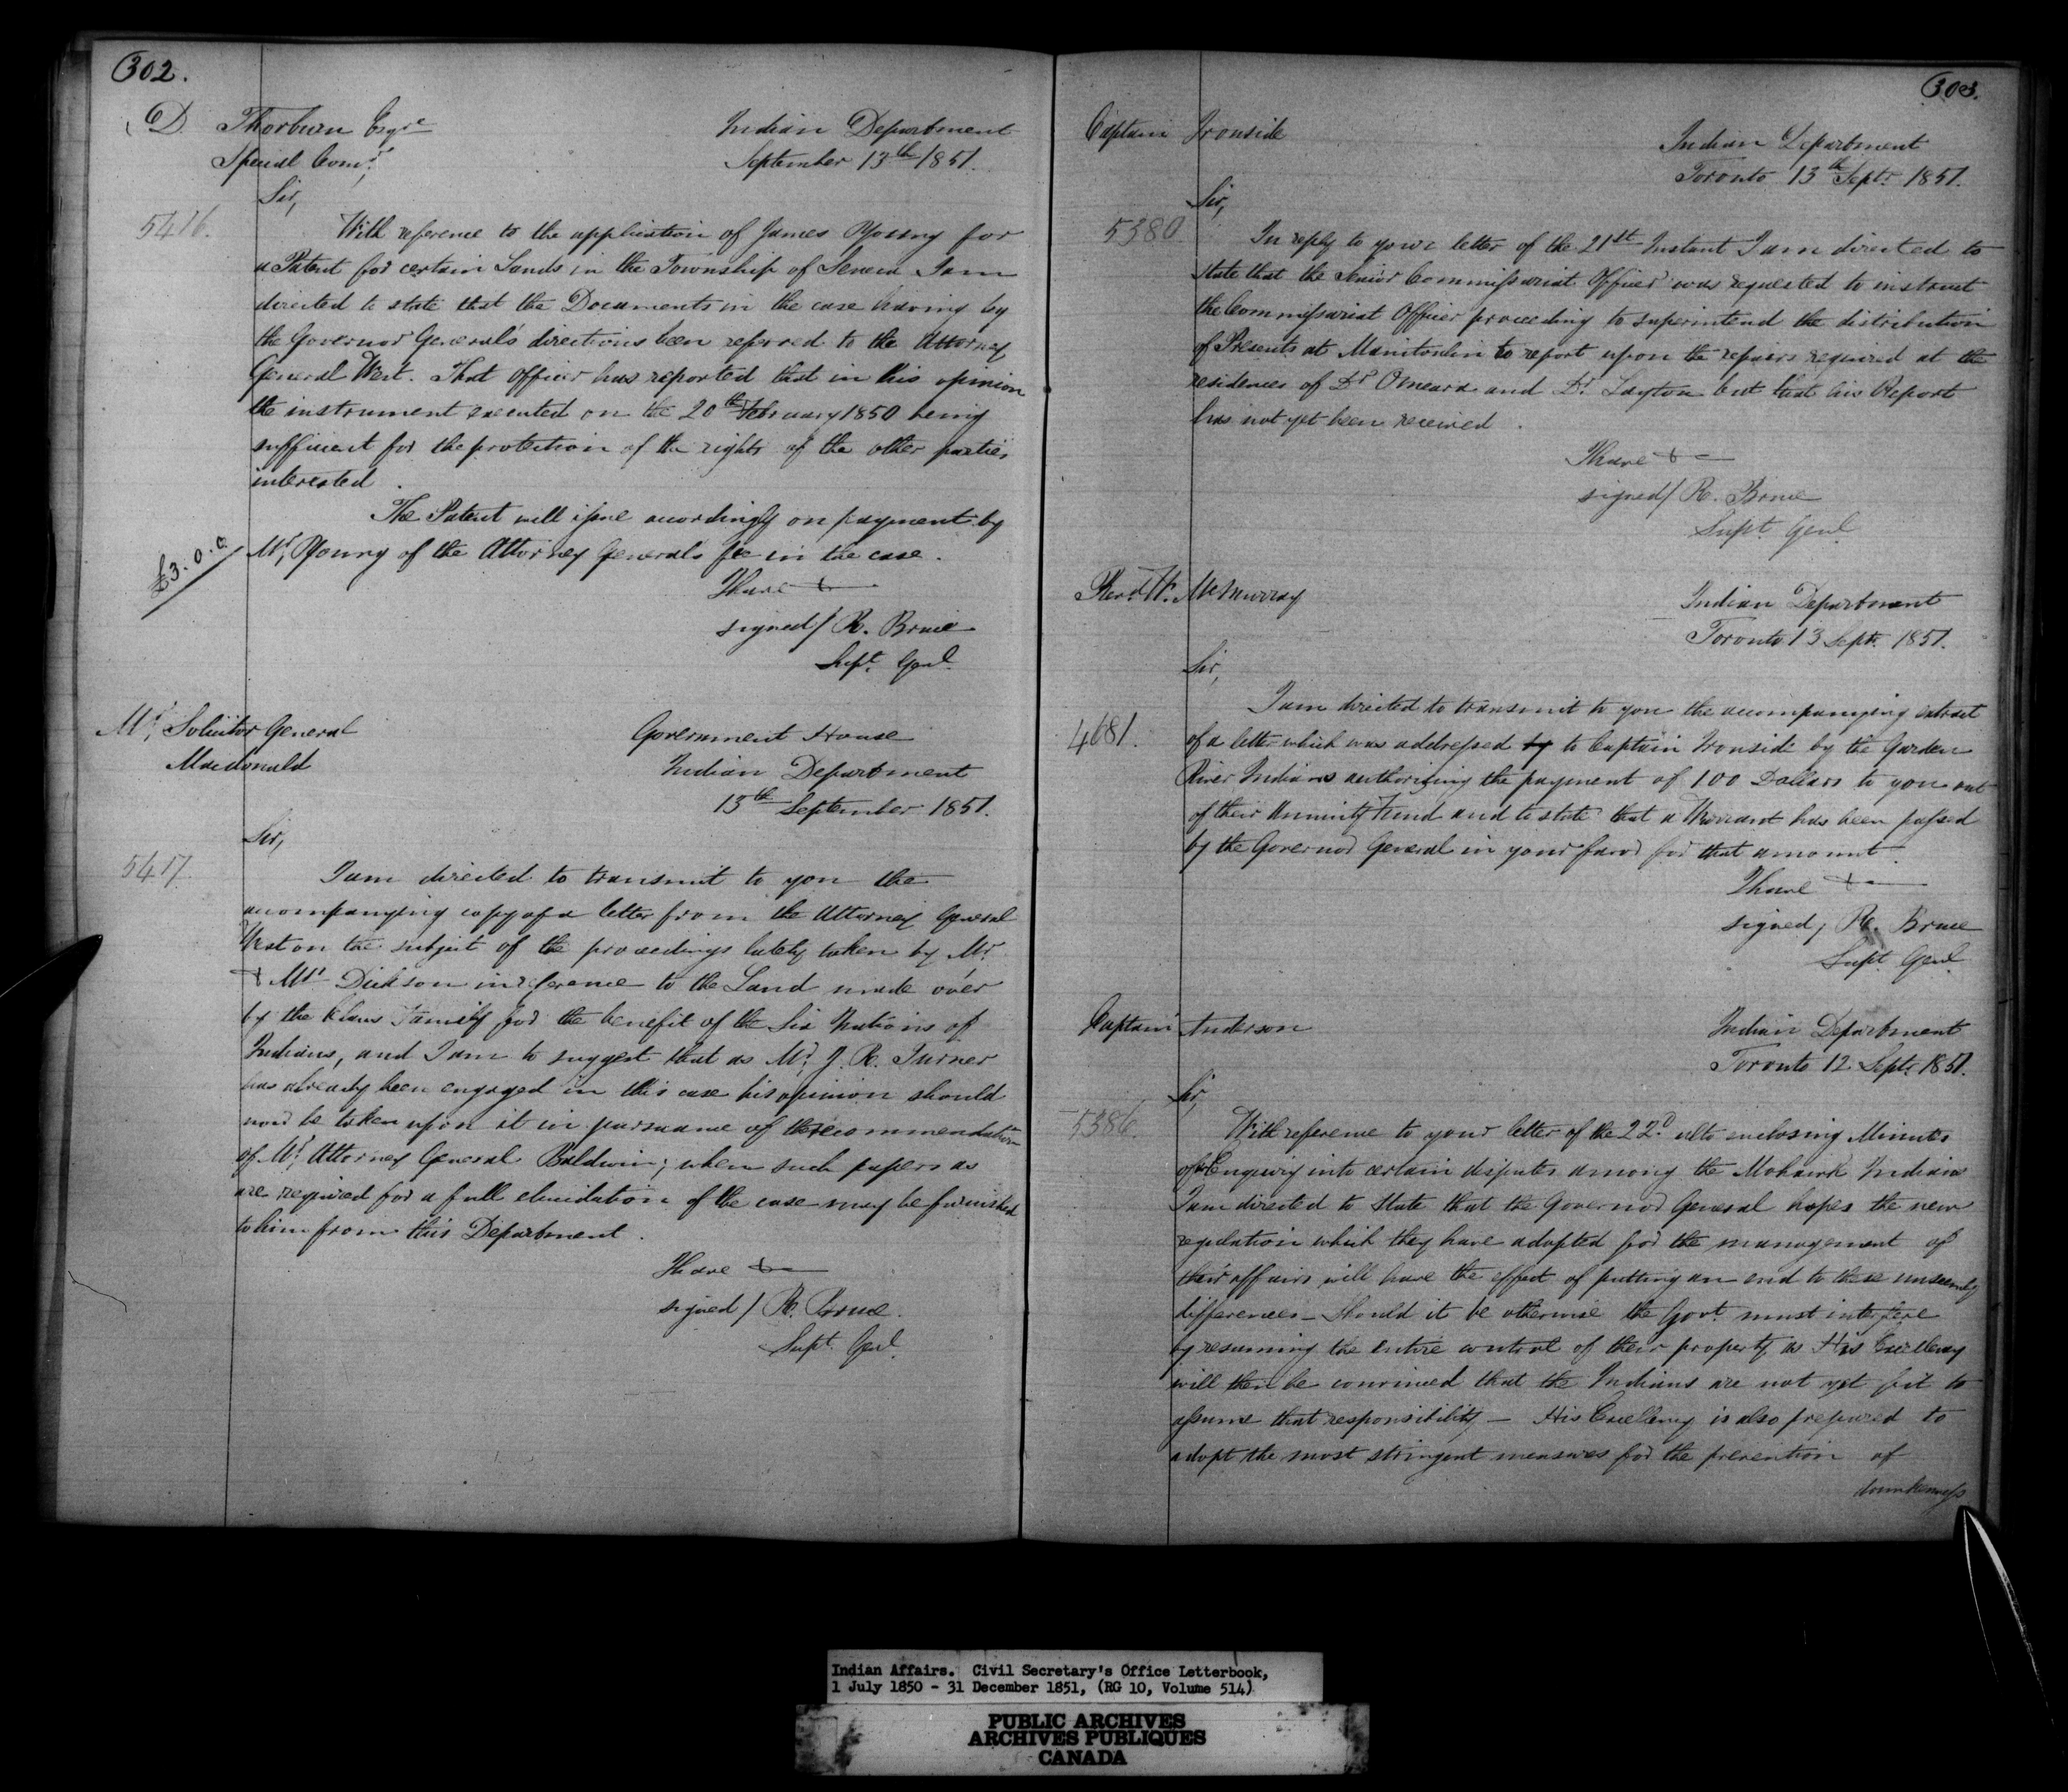 302.
D. Thorburn Esqre
Indian Department
Special Comr,
September 13th 1851.
Sir,
5416.
With reference to the application of James Young for
a Patent for certain Lands in the Township of Seneca I am
directed to state that the Documents in the case having by
the Governor General's directions been referred to the Attorney
General West. That Officer has reported that in his opinion
the instrument executed on the 20th February 1850 being
sufficient for the protection of the rights of the other parties
interested.
The Patent will issue accordingly on payment by
£3.0.0
Mr, Young of the Attorney General's fee in the case.
I have &
signed / R. Bruce
Supt. Genl.
Mr, Solicitor General
Macdonald
Government House
Indian Department
13th September 1851.
Sir,
5417.
I am directed to transmit to you the
accompanying copy of a letter from the Attorney General
West on the subject of the proceedings lately taken by Mr.
& Mrs. Dickson in reference to the Land made over
by the Klaus Family for the benefit of the Six Nations of
Indians, and I am to suggest that as Mr. J. R. Turner
has already been engaged in this case his opinion should
now be taken upon it in pursuance of the recommendation
of Mr, Attorney General Baldwin; when such papers as
are required for a full elucidation of the case may be furnished
to him from this Department.
I have &
signed / R. Bruce.
Supt. Genl.
303.
Captain Ironside
Indian Department
Toronto 13th Septr. 1851.
Sir,
5380.
In reply to your letter of the 21st Instant I am directed to
state that the Senior Commissariat Officer was requested to instruct
the Commissariat Officer proceeding to superintend the distribution
of Presents at Manitoulin to report upon the repairs required at the
residences of Dr Omeara and Dr. Layton but that his Report
has not yet been received.
I have &
signed / R. Bruce
Supt. Genl.
Revd. W. McMurray
Indian Department
Toronto 13 Septr. 1851.
Sir,
4681.
I am directed to transmit to you the accompanying extract
of a letter which was addressed by to Captain Ironside by the Garden
River Indians authorizing the payment of 100 Dollars to you out
of their Annuity Fund and to state that a Warrant has been passed
by the Governor General in your favor for that amount.
I have &
signed, R. Bruce
Supt. Genl
Captain Anderson
Indian Department
Toronto 12 Septr. 1851.
Sir,
5386
With reference to your letter of the 22d ulto enclosing Minutes
of Enquiry into certain disputes among the Mohawk Indians
I am directed to State that the Governor General hopes the new
regulation which they have adopted for the management of
their affairs will have the effect of putting an end to these unseemly
differences – Should it be otherwise the Govt. must interfere
by resuming the entire control of their property as His Excellency
will then be convinced that the Indians are not yet fit to
assume that responsibility – His Excellency is also prepared to
adopt the most stringent measures for the prevention of
drunkenness
Indian Affairs. Civil Secretary's Office Letterbook,
1 July 1850 - 31 December 1851, (RG 10, Volume 514)
PUBLIC ARCHIVES
ARCHIVES PUBLIQUES
CANADA